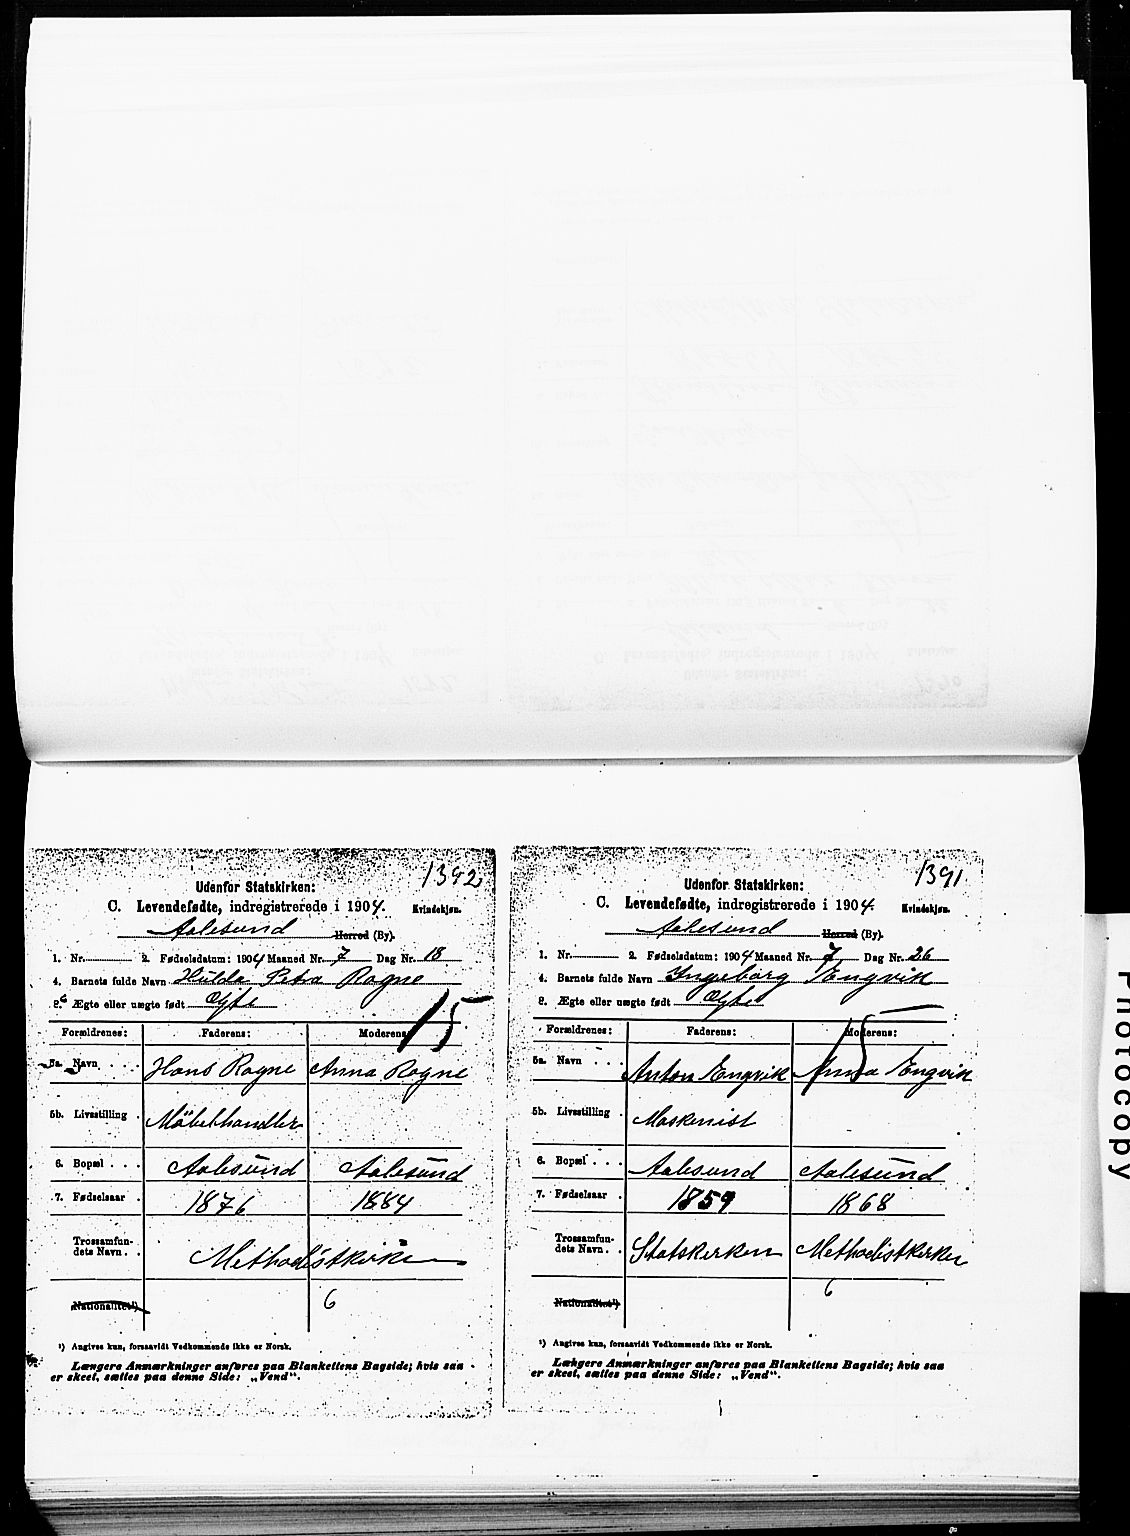 1392
Udenfor Statskirken:
C. Levendefødte, indregistrerede i 1904. Kvindekjøn.
Aalesund Herred (By).
1. Nr. 2. Fødselsdatum: 1904 Maaned Nr. 7 Dag Nr. 18
4. Barnets fulde Navn Hulda Petra Rogne
Ægte eller uægte født Ægte
15
Forældrenes: Faderens: Moderens:
5a. Navn Hans Rogne Anna Rogne
5b. Livsstilling Møbelhandler
6. Bopæl Aalesund Aalesund
7. Fødselsaar 1876 1884
Trossamfun-
dets Navn Methodistkirken
6
Nationalitet¹)
¹) Angives kun, forsaavidt Vedkommende ikke er Norsk.
Længere Anmærkninger anføres paa Blankettens Bagside; hvis saa
er skeet, sættes paa denne Side: „Vend“.
1391
Udenfor Statskirken:
C. Levendefødte, indregistrerede i 1904. Kvindekjøn.
Aalesund Herred (By).
1. Nr. 2. Fødselsdatum: 1904 Maaned Nr. 7 Dag Nr. 26
4. Barnets fulde Navn Ingeborg Engvik
Ægte eller uægte født Ægte
15
Forældrenes: Faderens: Moderens:
5a. Navn Anton Engvik Anna Engvik
5b. Livsstilling Maskenist
6. Bopæl Aalesund Aalesund
7. Fødselsaar 1859 1868
Trossamfun-
dets Navn Statskerken Methodistkerken
6
Nationalitet¹)
¹) Angives kun, forsaavidt Vedkommende ikke er Norsk.
Længere Anmærkninger anføres paa Blankettens Bagside; hvis saa
er skeet, sættes paa denne Side: „Vend“.
Photocopy